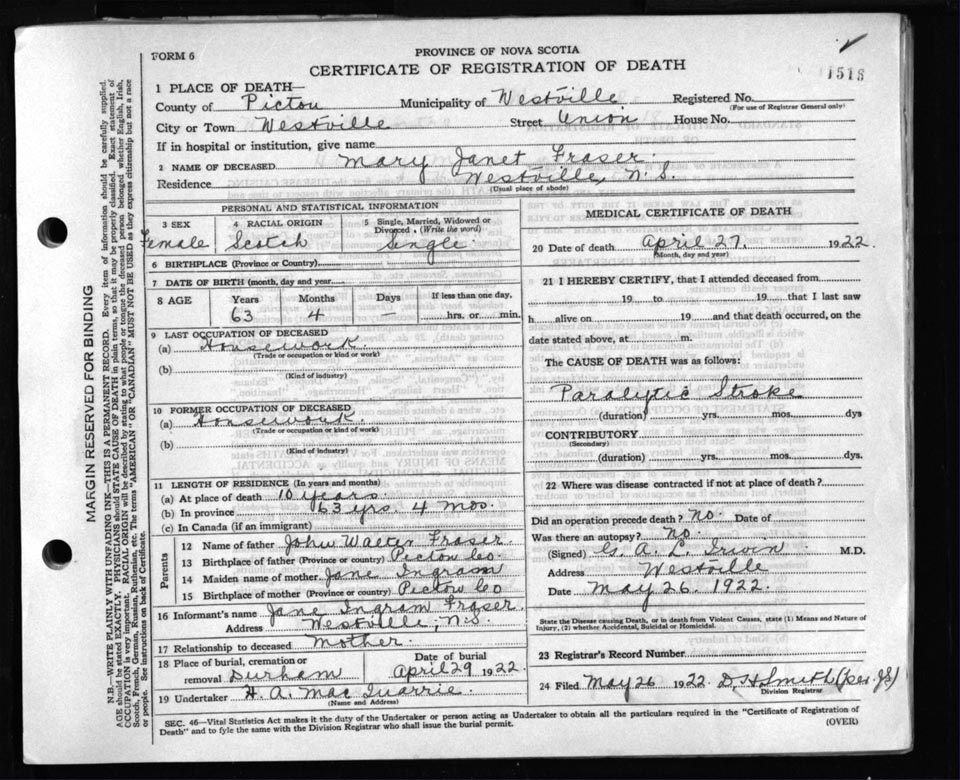 FORM 6
PROVINCE OF NOVA SCOTIA
CERTIFICATE OF REGISTRATION OF DEATH
1518
1 PLACE OF DEATH—
County of Pictou Municipality of Westville Registered No.
(For use of Registrar General only)
City or Town Westville Street Union House No.
If in hospital or institution, give name
2 NAME OF DECEASED Mary Janet Fraser.
Residence Westville, N.S.
(Usual place of abode)
MARGIN RESERVED FOR BINDING
N.B.—WRITE PLAINLY WITH UNFADING INK—THIS IS A PERMANENT RECORD. Every item of information should be carefully supplied.
AGE should be stated EXACTLY. PHYSICIANS should STATE CAUSE OF DEATH in plain terms, so that it may be properly classified. Exact statement of
OCCUPATION is very important. RACIAL ORIGIN will be described by stating to what people or tongue the deceased person belonged whether English, Irish,
Scotch, French, German, Russian, Ruthenian, etc. The terms "AMERICAN" OR "CANADIAN" MUST NOT BE USED as they express citizenship but not a race
or people. See instructions on back of Certificate.
PERSONAL AND STATISTICAL INFORMATION
3 SEX
Female
4 RACIAL ORIGIN
Scotch
5 Single, Married, Widowed or
Divorced. (Write the word)
Single.
6 BIRTHPLACE (Province or Country)
7 DATE OF BIRTH (month, day and year
8 AGE Years Months Days If less than one day,
63 4 — hrs. or min.
9 LAST OCCUPATION OF DECEASED
(a) Housework.
(Trade or occupation or kind of work)
(b)
(Kind of industry)
10 FORMER OCCUPATION OF DECEASED
(a) Housework
(Trade or occupation or kind of work)
(b)
(Kind of industry)
11 LENGTH OF RESIDENCE (In years and months)
(a) At place of death 10 years.
(b) In province 63 yrs. 4 mos.
(c) In Canada (if an immigrant)
Parents
12 Name of father John Walter Fraser.
13 Birthplace of father (Province or country) Pictou Co.
14 Maiden name of mother Jane Ingram
15 Birthplace of mother (Province or country) Pictou Co
16 Informant's name Jane Ingram Fraser.
Address Westville, N.S.
17 Relationship to deceased Mother.
18 Place of burial, cremation or
removal Durham
Date of burial
April 29 1922.
19 Undertaker H. A. MacQuarrie.
(Name and Address)
MEDICAL CERTIFICATE OF DEATH
20 Date of death April 27. 1922.
(Month, day and year)
21 I HEREBY CERTIFY, that I attended deceased from
19 to 19 that I last saw
h alive on 19 and that death occurred, on the
date stated above, at m.
The CAUSE OF DEATH was as follows:
Paralytic Stroke
(duration) yrs. mos. dys
CONTRIBUTORY
(Secondary)
(duration) yrs. mos. dys.
22 Where was disease contracted if not at place of death?
Did an operation precede death? No. Date of
Was there an autopsy? No.
(Signed) G. A. L. Irwin M.D.
Address Westville
Date May 26. 1922.
State the Disease causing Death, or in death from Violent Causes, state (1) Means and Nature of
Injury, (2) whether Accidental, Suicidal or Homicidal.
23 Registrar's Record Number
24 Filed May 26 1922. D. H Smith
Division Registrar
SEC. 46—Vital Statistics Act makes it the duty of the Undertaker or person acting as Undertaker to obtain all the particulars required in the "Certificate of Registration of
Death" and to fyle the same with the Division Registrar who shall issue the burial permit.
(OVER)